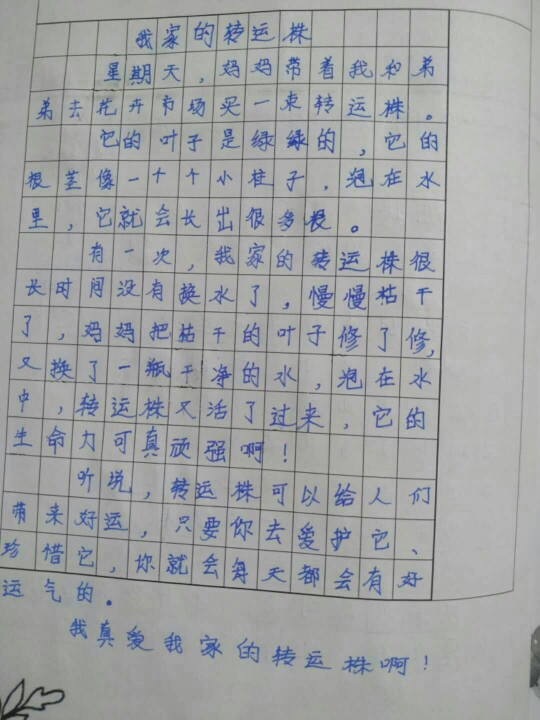 我家的转运株
星期天，妈妈带着我和弟
弟去花卉市场买一束转运株。
它的叶子是绿绿的，它的
根茎像一个个小柱子，泡在水
里，它就会长出很多根。
有一次，我家的转运株很
长时间没有换水了，慢慢枯干
了，妈妈把枯干的叶子修了修，
又换了一瓶干净的水，泡在水
中，转运株又活了过来，它的
生命力可真顽强啊！
听说，转运株可以给人们
带来好运，只要你去爱护它、
珍惜它，你就会每天都会有好
运气的。
我真爱我家的转运株啊！